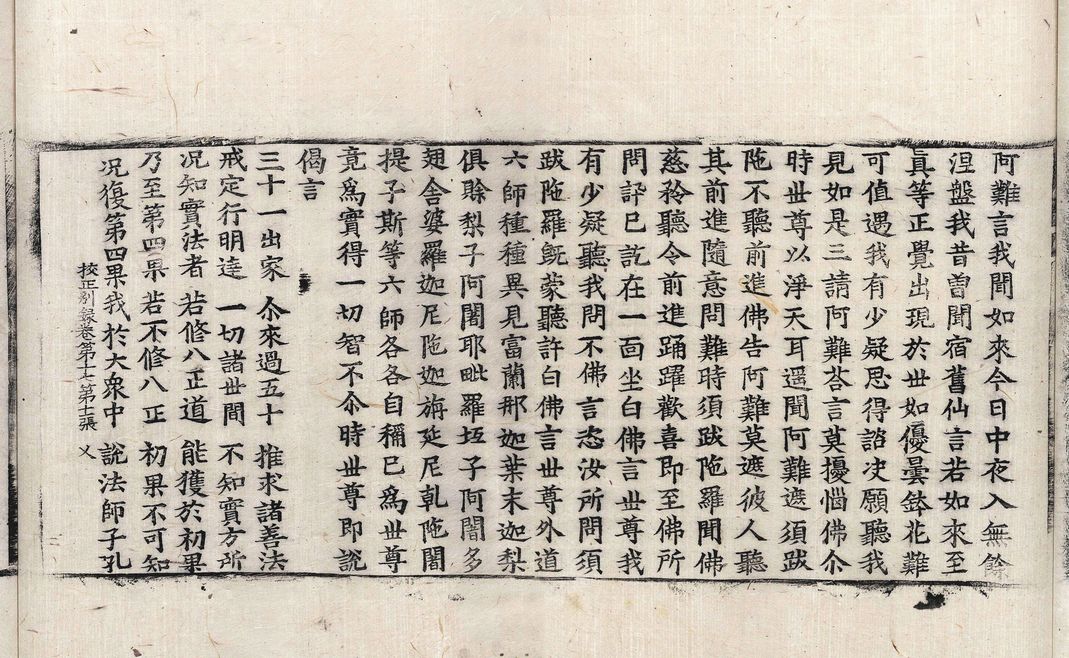 阿難言我聞如來今日中夜入無餘
涅盤我昔曾聞宿舊仙言若如來至
真等正覺出現於世如優曇鉢花難
可值遇我有少疑思得諮决願聽我
見如是三請阿難荅言莫擾惱佛尒
時世尊以淨天耳遥聞阿難遮須跋
陁不聽前進佛告阿難莫遮彼人聽
其前進隨意問難時須跋陁羅聞佛
慈矜聽令前進踊躍歡喜即至佛所
問訊已訖在一面坐白佛言世尊我
有少疑聽我問不佛言恣汝所問須
跋陁羅旣蒙聽許白佛言世尊外道
六師種種異見富蘭那迦葉末迦梨
俱賖梨子阿闍耶毗羅坻子阿闍多
翅舍婆羅迦尼陁迦旃延尼乹陁闍
提子斯等六師各各自稱已爲世尊
竟爲實得一切智不尒時世尊即說
偈言
三十一出家 尒來過五十 推求諸善法
戒定行明達 一切諸世間 不知實方所
况知實法者 若修八正道 能獲於初果
乃至第四果 若不修八正 初果不可知
况復第四果 我於大衆中 說法師子孔
校正别録卷第十 第十二張 㐅